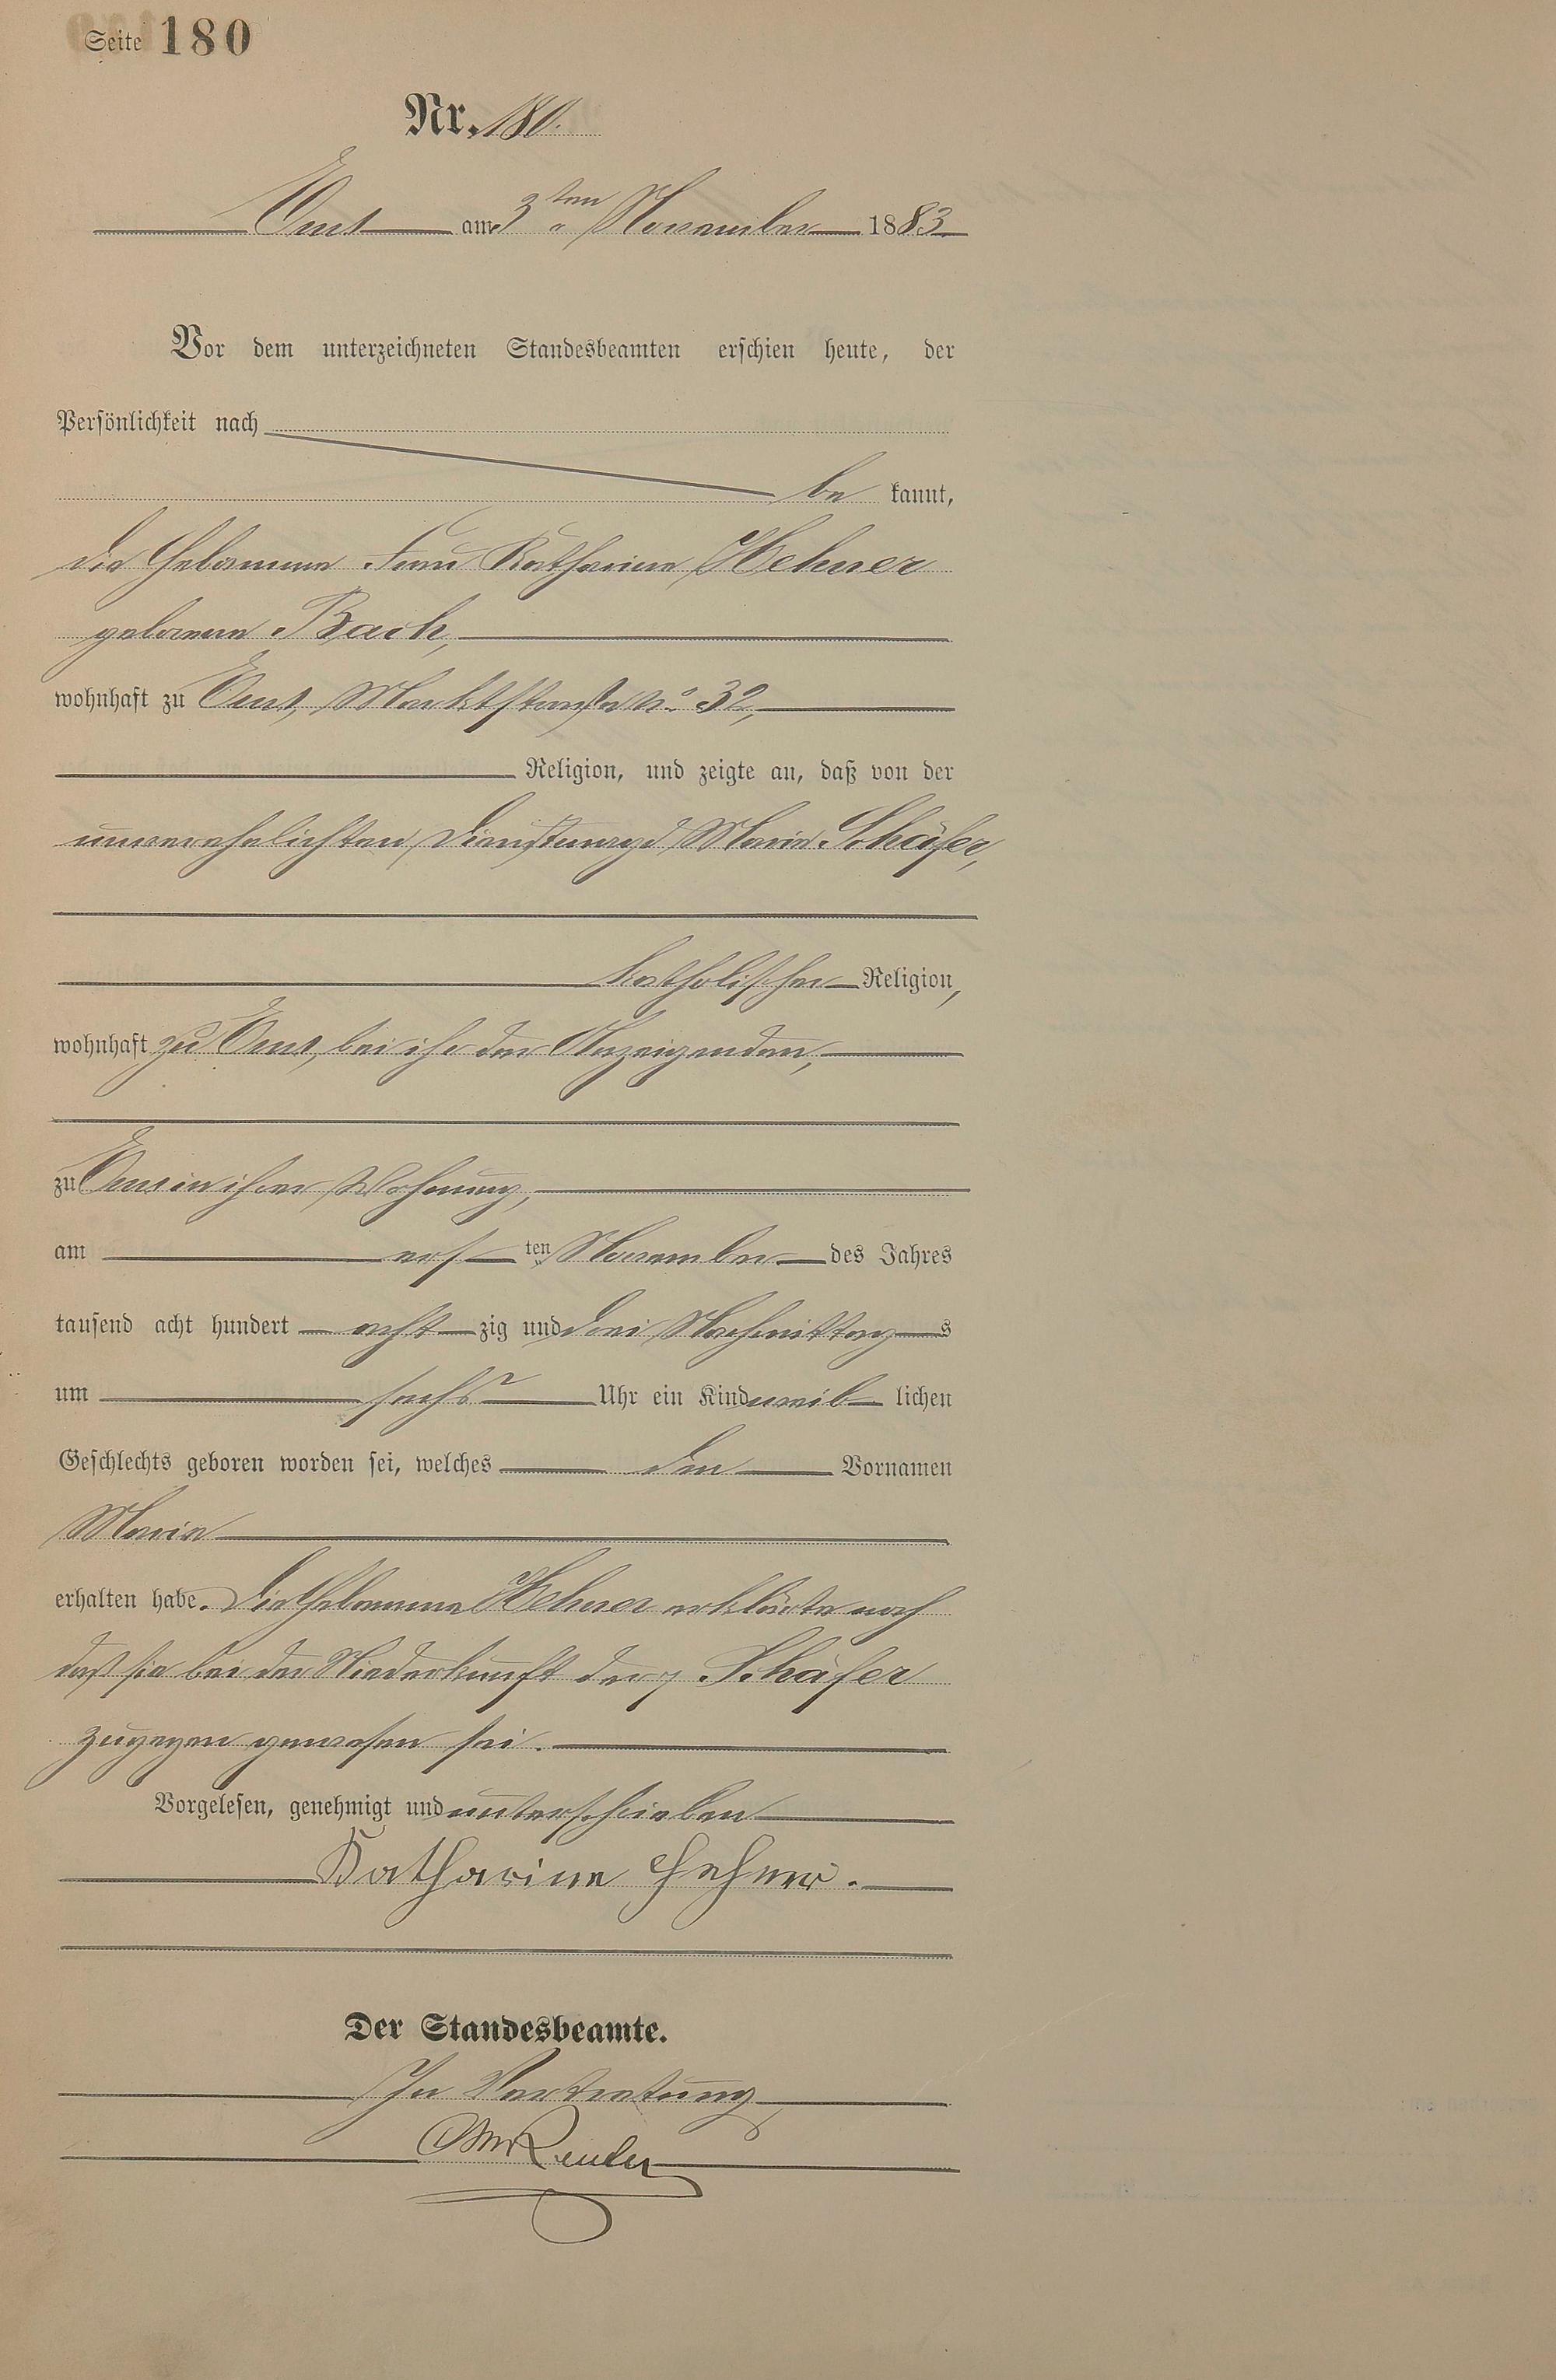 Seite 180
Nr. 180.
Ems am 3ten November 1883
Vor dem unterzeichneten Standesbeamten erschien heute, der
Persönlichkeit nach
be kannt,
die Hebamme Frau Katharina Hehner
geborene Bach,
wohnhaft zu Ems, Marktstraße No. 32,
Religion, und zeigte an, daß von der
unverehelichten Dienstmagd Maria Schäfer,
katholischer Religion,
wohnhaft zu Ems, bei ihr der Anzeigenden,
zu Ems in ihrer Wohnung,
am ersten November des Jahres
tausend acht hundert acht zig und drei Nachmittags
um sechs Uhr ein Kind weib lichen
Geschlechts geboren worden sei, welches den Vornamen
Maria
erhalten habe. Die Hebamme Hehner erklärte noch
daß sie bei der Niederkunft der p Schäfer
zugegen gewesen sei.
Vorgelesen, genehmigt und unterschrieben
Katharine Hehner.
Der Standesbeamte.
In Vertretung